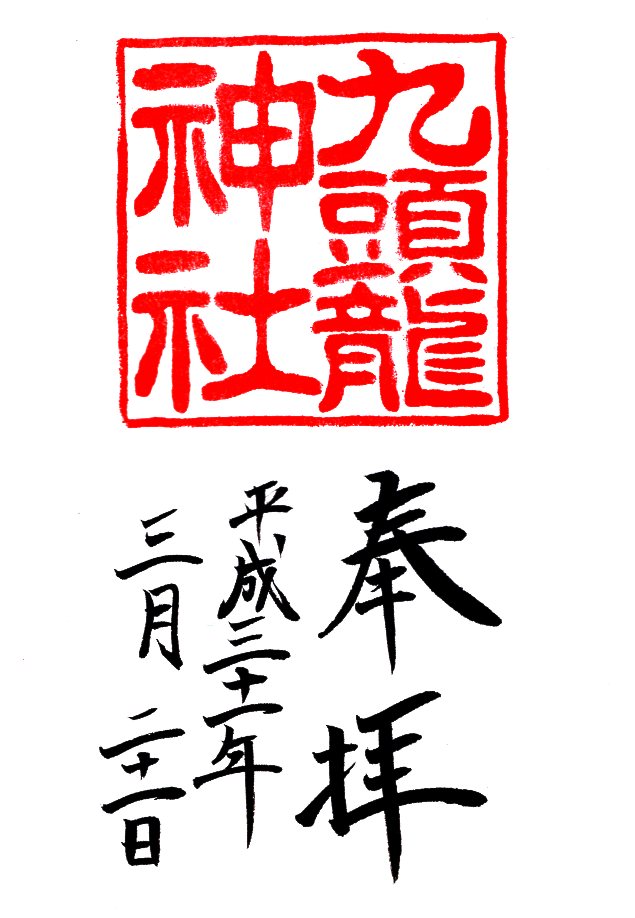 九頭龍
神社
奉拝
平成三十一年
三月二十一日